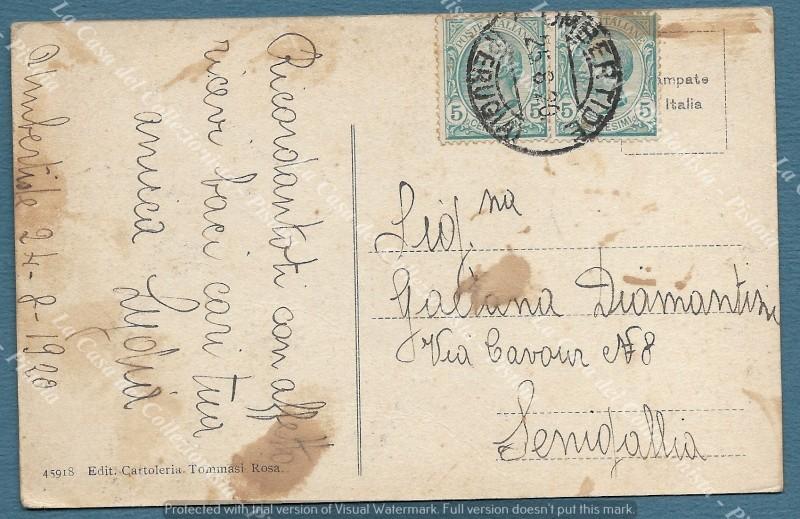 Ricordandoti con affetto
ricevi baci cari tua
amica Lydia
Umbertide 24-8-1920
45918 Edit. Cartoleria Tommasi Rosa.
POSTE ITALIANE
5
5
UMBERTIDE
(PERUGIA)
mpate
Italia
Sig.na
Gaetana Diamantini
Via Cavour N 8
Senigallia
La Casa del Collezionista - Pistoia
Protected with trial version of Visual Watermark. Full version doesn't put this mark.